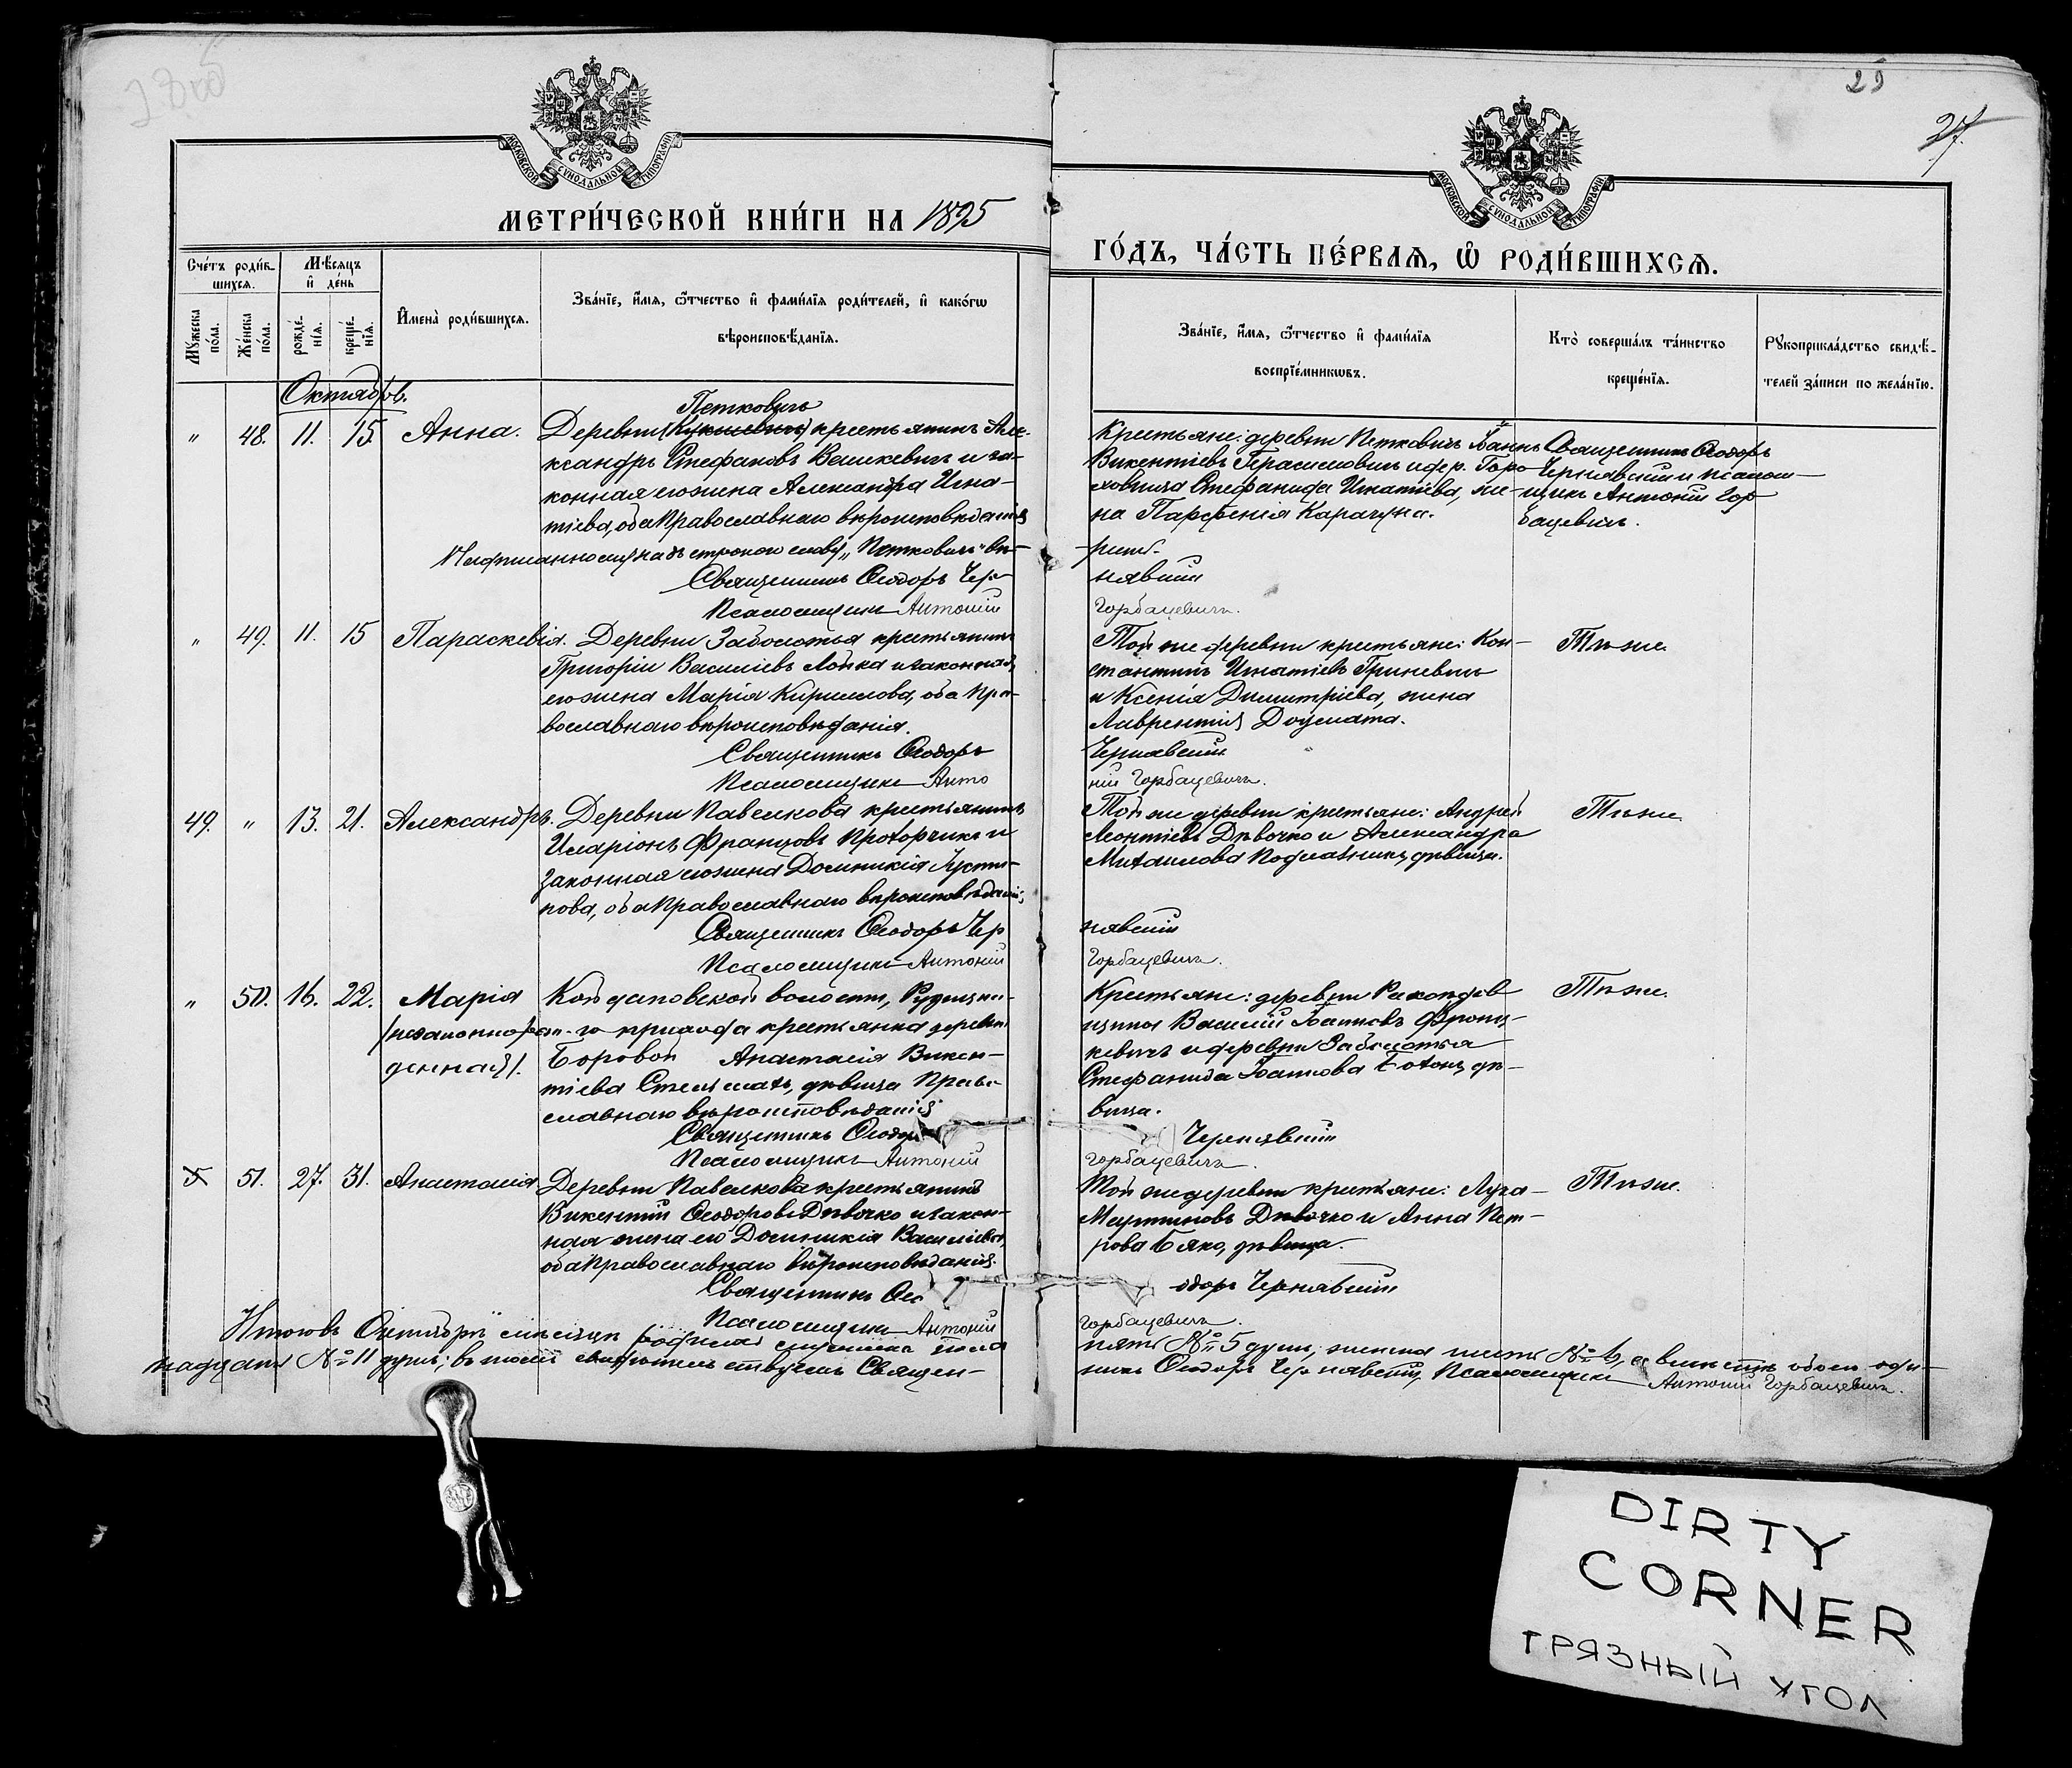 25
27.
МОСКОВСКОЙ СУНОДАЛЬНОЙ ТИПОГРАФІИ
МОСКОВСКОЙ СУНОДАЛЬНОЙ ТИПОГРАФІИ
МЕТРИ́ЧЕСКОЙ КНИ́ГИ НА 1895
ГО́ДЪ, ЧА́СТЬ ПЕ́РВАѦ, Ѡ҆ РОДИ́ВШИХСѦ.
Сче́тъ роди́в-
шихсѧ.
Мѣ́сѧцъ
и҆ де́нь
Мꙋ́жеска по́ла.
Же́нска по́ла.
рожде́нїѧ.
креще́нїѧ.
И҆мена̀ роди́вшихсѧ.
Зва́нїе, и҆́мѧ, ѻ҆́тчество и҆ фами́лїѧ роди́телей, и҆ како́гѡ
вѣроисповѣ́данїѧ.
Зва́нїе, и҆́мѧ, ѻ҆́тчество и҆ фами́лїѧ
воспрїе́мникѡвъ.
Кто̀ соверша́лъ та́инство
креще́нїѧ.
Рꙋкоприкла́дство свидѣ́-
телей за́писи по жела́нїю.
Октябрь.
Петковичъ
" 48. 11. 15. Анна. Деревни (Кукшевичъ) крестьянинъ Але-
ксандръ Стефановъ Вашкевичъ и за-
конная его жена Александра Игна-
тіева, оба Православнаго вѣроисповѣданія
Крестьяне: деревни Петковичъ Іоаннъ
Викентіевъ Герасимовичъ и дер. Горо-
ховища Стефанида Игнатіева, же-
на Парѳенія Карачуна.
Священникъ Ѳеодоръ
Чернявскій и псалом-
щикъ Антоній Гор
бацевичъ.
Надписанному надъ строкою слову „Петковичъ" вѣ-
рить.
Священникъ Ѳеодоръ Чер
нявскій
Псаломщикъ Антоній
Горбацевичъ.
" 49. 11. 15 Параскевія. Деревни Заболотья крестьянинъ
Григорій Василіевъ Лойка и законная
его жена Марія Кириллова, оба Пра-
вославнаго вѣроисповѣданія.
Той же деревни крестьяне: Кон-
стантинъ Игнатіевъ Гриневичъ
и Ксенія Димитріева, жена
Лаврентія Доумата.
Тѣ же.
Священникъ Ѳеодоръ
Чернявскій
Псаломщикъ Анто
ній Горбацевичъ.
49. " 13. 21. Александръ. Деревни Павелкова крестьянинъ
Иларіонъ Францовъ Проторчикъ и
законная его жена Доминикія Іусти-
нова, оба Православнаго вѣроисповѣданія
Той же деревни крестьяне: Андрей
Леонтіевъ Дѣвочко и Александра
Михаилова Подгайникъ, дѣвица.
Тѣ же.
Священникъ Ѳеодоръ Чер
нявскій
Псаломщикъ Антоній
Горбацевичъ.
" 50. 16. 22. Марія
(незаконнорож-
денная).
Койдановской волости, Рудицка-
го прихода крестьянка деревни
Боровой Анастасія Викен-
тіева Стельмахъ, дѣвица Право-
славнаго вѣроисповѣданія
Крестьяне: деревни
Василій Іоанновъ Фронц-
кевичъ и деревни Заболотья
Стефанида Іоаннова дѣ-
вица.
Тѣ же.
Священникъ Ѳеодоръ
Чернявскій
Псаломщикъ Антоній
Горбацевичъ.
51. 27. 31. Анастасія Деревни Павелкова крестьянинъ
Викентій Ѳеодоровъ Дѣвочко и закон-
ная жена его Доминикія Василіева,
оба Православнаго вѣроисповѣданія.
Той же деревни крестьяне: Лука
Мартиновъ Дѣвочко и Анна Пет-
рова Бяко, дѣвица.
Тѣ же.
Священникъ Ѳео
одоръ Чернявскій
Псаломщикъ Антоній
Горбацевичъ.
Итого въ Октябрѣ мѣсяцѣ родилось мужеска пола
пять № 5 душъ, женска шесть № 6, а вмѣстѣ обоего оди-
надцать № 11 душъ; въ томъ свидѣтельствуемъ Священ-
никъ Ѳеодоръ Чернявскій, Псаломщикъ Антоній Горбацевичъ.
DIRTY
CORNER
ГРЯЗНЫЙ УГОЛ